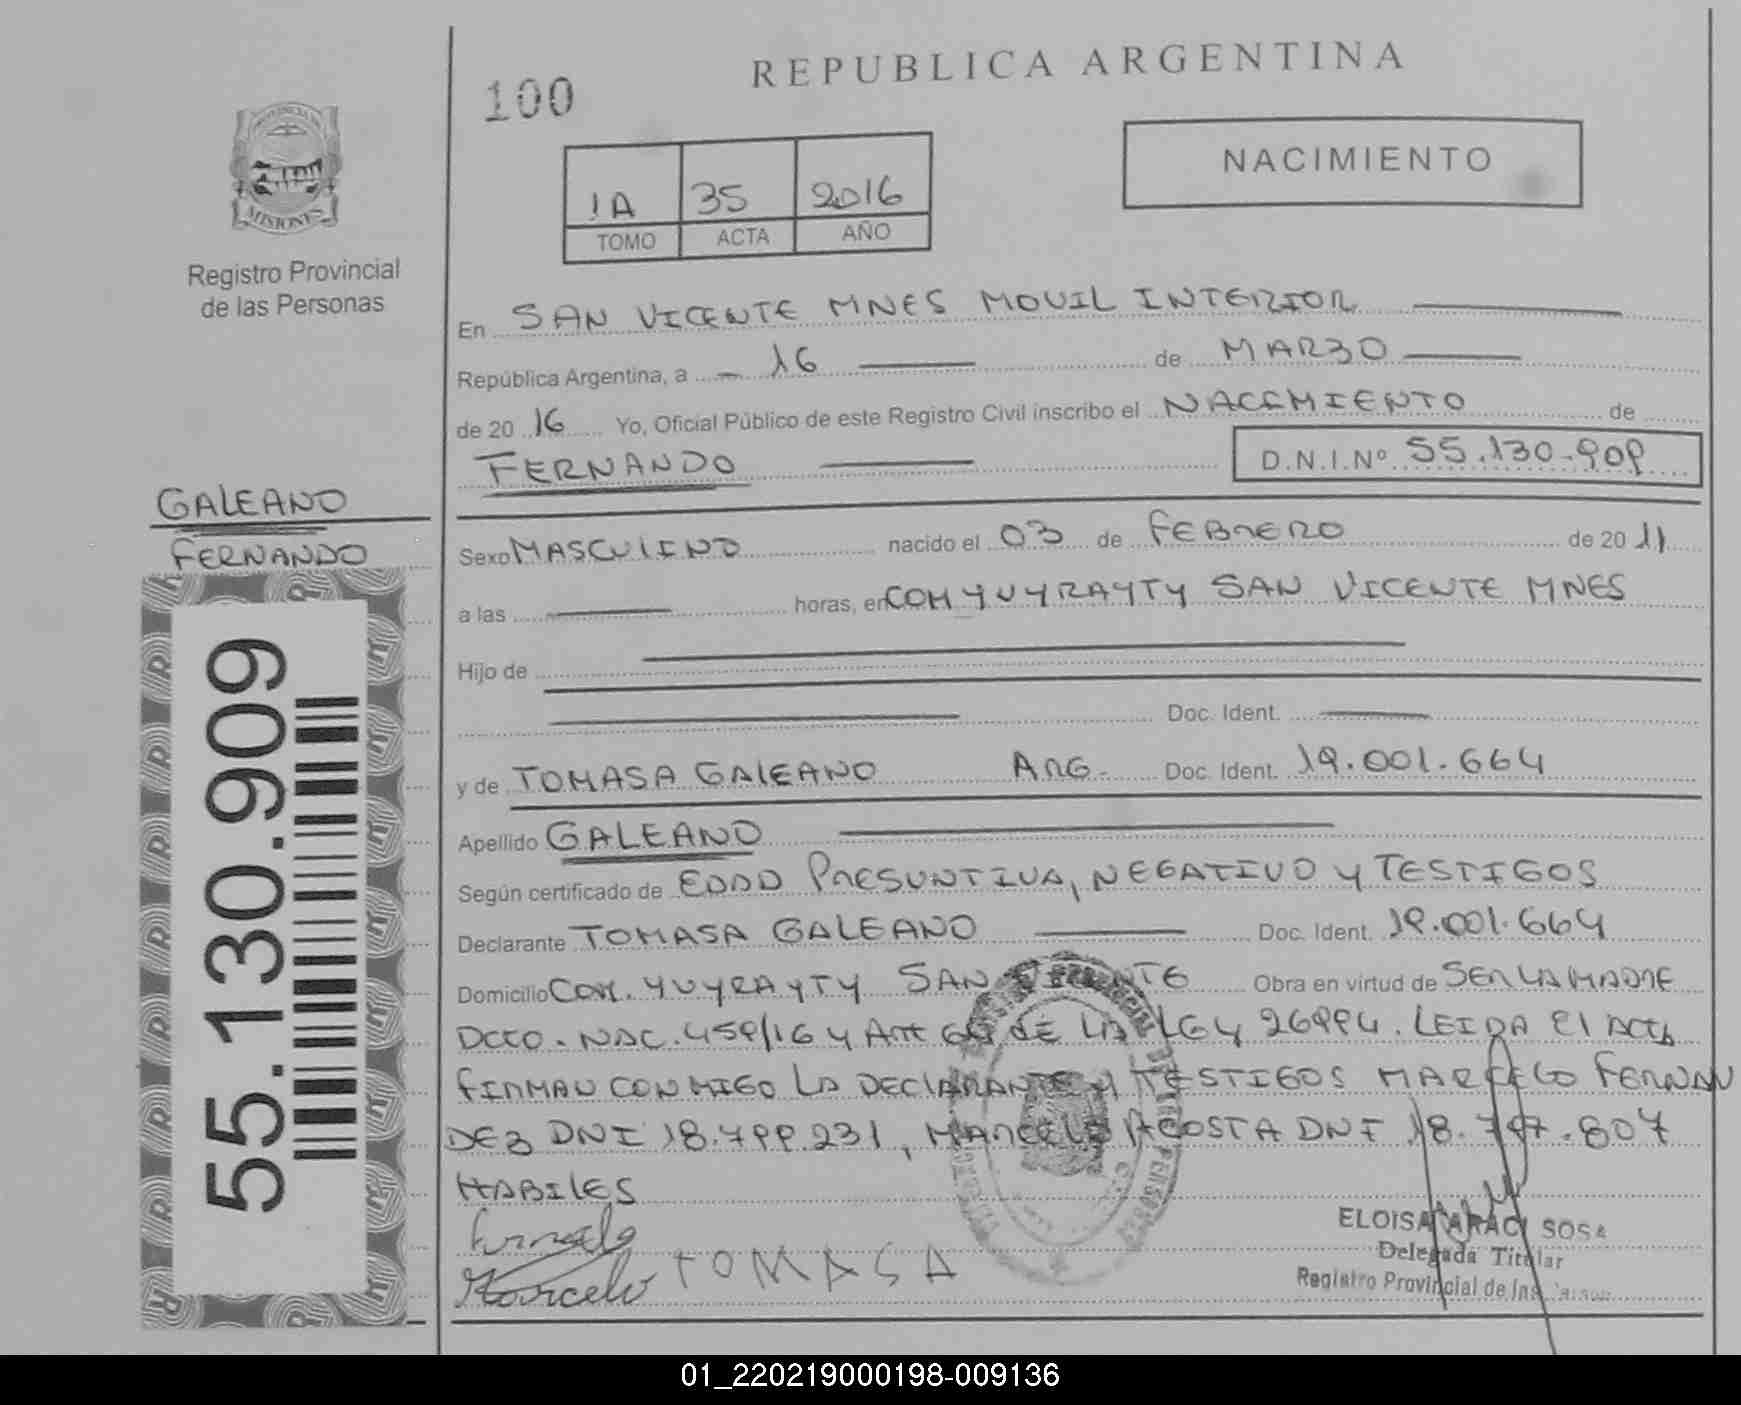 REPUBLICA ARGENTINA
100
NACIMIENTO
1A 35 2016
TOMO ACTA AÑO
PROVINCIA DE
MISIONES
Registro Provincial
de las Personas
En SAN VICENTE MNES MOVIL INTERIOR
República Argentina, a 16 de MARZO
de 2016 Yo, Oficial Público de este Registro Civil inscribo el NACIMIENTO de
FERNANDO D.N.I.Nº 55.130.909
GALEANO
FERNANDO
55.130.909
Sexo MASCULINO nacido el 03 de FEBRERO de 2011
a las horas, en COM YUYRAYTY SAN VICENTE MNES
Hijo de
Doc. Ident.
y de TOMASA GALEANO ARG. Doc. Ident. 19.001.664
Apellido GALEANO
Según certificado de EDAD PRESUNTIVA, NEGATIVO Y TESTIGOS
Declarante TOMASA GALEANO Doc. Ident. 19.001.664
Domicilio COM. YUYRAYTY SAN VICENTE Obra en virtud de SER LA MADRE
DCTO. NAC. 459/16 Y ART DE LA LEY 26994. LEIDA EL ACTA
FIRMAN CONMIGO LA DECLARANTE Y TESTIGOS MARCELO FERNAN
DEZ DNI 18.799.231, MARCELO ACOSTA DNI 807
HABILES
Marcelo TOMASA
ELOISA ARACI SOSA
Delegada Titular
Registro Provincial de las
01_220219000198-009136